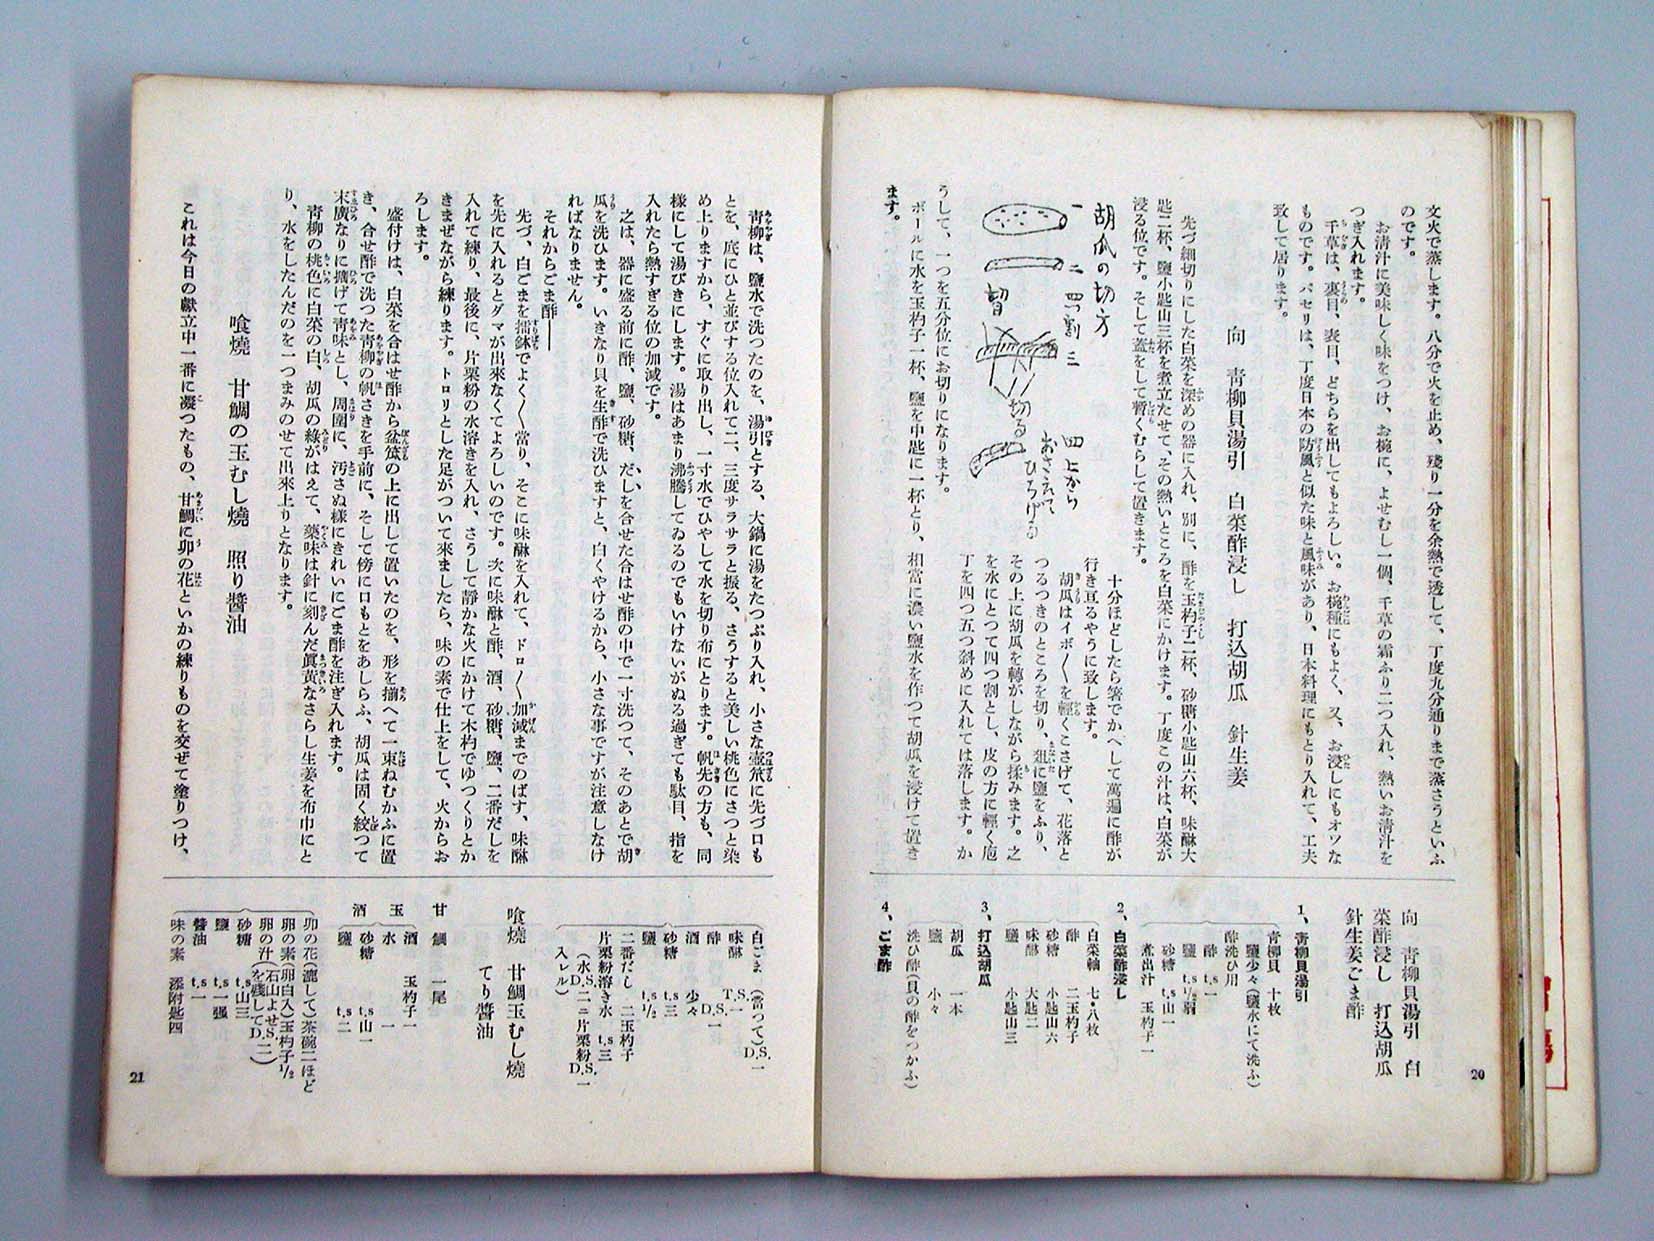 文火で蒸します。八分で火を止め、殘り一分を余熱で透して、丁度九分通りまで蒸さうといふ
のです。
お淸汁に美味しく味をつけ、お椀に、よせむし一個、千草の霜ふり二つ入れ、熱いお淸汁を
つぎ入れます。
千草は、裏目、表目、どちらを出してもよろしい。お椀種にもよく、又、お浸しにもオツな
ものです。パセリは、丁度日本の防風と似た味と風味があり、日本料理にもとり入れて、工夫
致して居ります。
向 靑柳貝湯引 白菜酢浸し 打込胡瓜 針生姜
先づ細切りにした白菜を深めの器に入れ、別に、酢を玉杓子二杯、砂糖小匙山六杯、味醂大
匙二杯、鹽小匙山三杯を煮立たせて、その熱いところを白菜にかけます。丁度この汁は、白菜が
浸る位です。そして蓋をして暫くむらして置きます。
胡瓜の切方
一 二 四つ割 三
切る
四 上から
おさえて
ひろげる
十分ほどしたら箸でかへして萬遍に酢が
行き亘るやうに致します。
胡瓜はイボ〳〵を輕くこさげて、花落と
つるつきのところを切り、俎に鹽をふり、
その上に胡瓜を轉がしながら揉みます。之
を水にとつて四つ割とし、皮の方に輕く庖
丁を四つ五つ斜めに入れては落します。か
うして、一つを五分位にお切りになります。
ボールに水を玉杓子一杯、鹽を中匙に一杯とり、相當に濃い鹽水を作つて胡瓜を浸けて置き
ます。
向 靑柳貝湯引 白
菜酢浸し 打込胡瓜
針生姜ごま酢
1、靑柳貝湯引
靑柳貝 十枚
鹽少々(鹽水にて洗ふ)
酢洗ひ用
酢 t.s一
鹽 t.s½弱
砂糖 t.s山一
煮出汁 玉杓子一
2、白菜酢浸し
白菜軸 七・八枚
酢 二玉杓子
砂糖 小匙山六
味醂 大匙二
鹽 小匙山三
3、打込胡瓜
胡瓜 一本
鹽 少々
洗ひ酢(貝の酢をつかふ)
4、ごま酢
20
靑柳は、鹽水で洗つたのを、湯引とする、大鍋に湯をたつぷり入れ、小さな壺笊に先づ口も
とを、底にひと並びする位入れて二、三度サラサラと振る、さうすると美しい桃色にさつと染
め上りますから、すぐに取り出し、一寸水でひやして水を切り布にとります。帆先の方も、同
樣にして湯びきにします。湯はあまり沸騰してゐるのでもいけないがぬる過ぎても駄目、指を
入れたら熱すぎる位の加減です。
之は、器に盛る前に酢、鹽、砂糖、だしを合せた合はせ酢の中で一寸洗つて、そのあとで胡
瓜を洗ひます。いきなり貝を生酢で洗ひますと、白くやけるから、小さな事ですが注意しなけ
ればなりません。
それからごま酢――
先づ、白ごまを擂鉢でよく〳〵當り、そこに味醂を入れて、ドロ〳〵加減までのばす、味醂
を先に入れるとダマが出來なくてよろしいのです。次に味醂と酢、酒、砂糖、鹽、二番だしを
入れて練り、最後に、片栗粉の水溶きを入れ、さうして靜かな火にかけて木杓でゆつくりとか
きまぜながら練ります。トロリとした足がついて來ましたら、味の素で仕上をして、火からお
ろします。
盛付けは、白菜を合はせ酢から盆笊の上に出して置いたのを、形を揃へて一束ねむかふに置
き、合せ酢で洗つた靑柳の帆さきを手前に、そして傍に口もとをあしらふ、胡瓜は固く絞つて
末廣なりに擴げて靑味とし、周圍に、汚さぬ樣にきれいにごま酢を注ぎ入れます。
靑柳の桃色に白菜の白、胡瓜の綠がはえて、藥味は針に刻んだ眞黃なさらし生姜を布巾にと
り、水をしたんだのを一つまみのせて出來上りとなります。
喰燒 甘鯛の玉むし燒 照り醬油
これは今日の獻立中一番に凝つたもの、甘鯛に卯の花といかの練りものを交ぜて塗りつけ、
白ごま(當つて)D.S.一
味醂 T.S.一
酢 D.S.一
酒 少々
砂糖 t.s三
鹽 t.s½
二番だし 二玉杓子
片栗粉溶き水 t.s三
(水D.S.二ニ片栗粉D.S.一
入レル)
喰燒 甘鯛玉むし燒
てり醬油
甘鯛 一尾
玉酒
酒 玉杓子一
水 一
砂糖 t.s山一
鹽 t.s二
卯の花(漉して)茶碗二ほど
卵の素(卵白入)玉杓子½
卵の汁(石山よせS.二
を殘してD.)
砂糖 t.s山三
鹽 t.s一强
醬油 t.s一
味の素 添附匙四
21